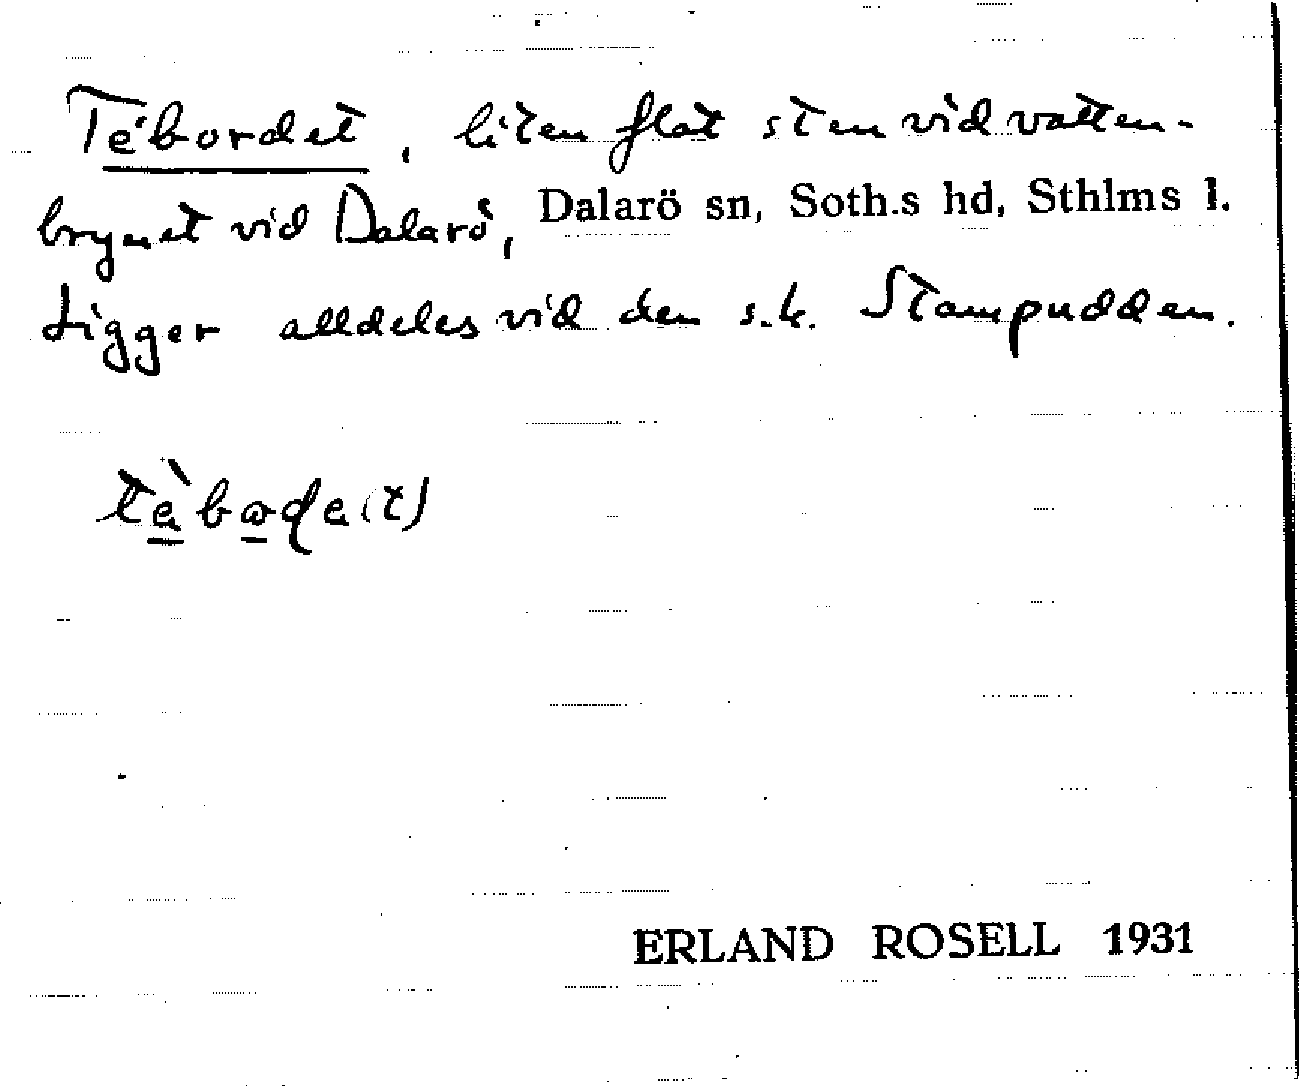 Tébordet, liten flat sten vid vatten-
brynet vid Dalarö, Dalarö sn, Soth.s hd, Sthlms l.
Ligger alldeles vid den s.k. Stampudden.
tèbơɖe(t)
ERLAND ROSELL 1931